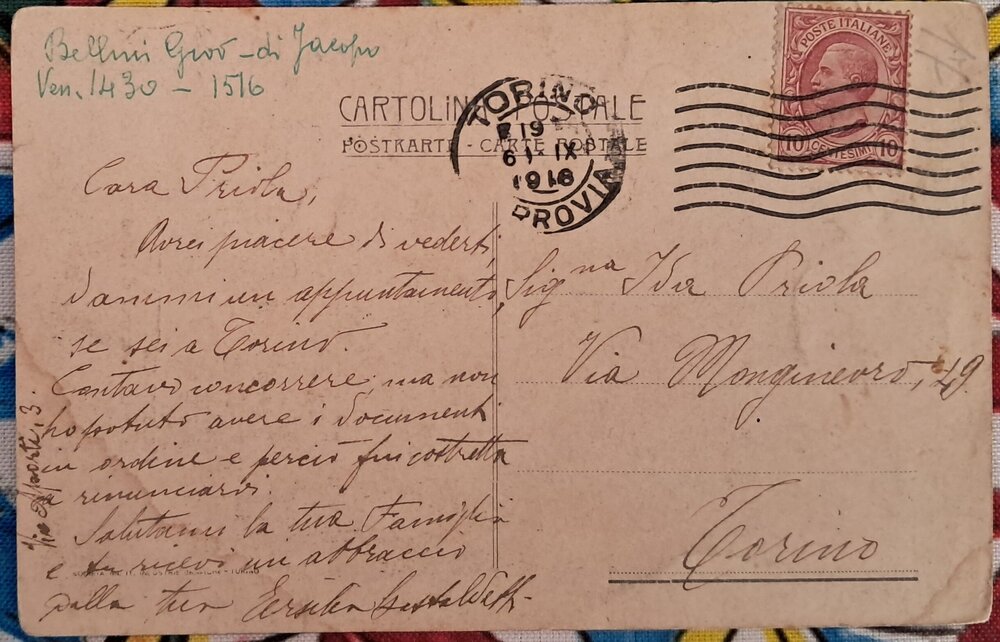 Bellini Giov - di Jacopo
Ven. 1430 - 1516
CARTOLINA POSTALE
POSTKARTE - CARTE POSTALE
TORINO
19
6 IX
1916
POSTE ITALIANE
10 CENTESIMI 10
Cara Priola,
Avrei piacere di vederti,
dammi un appuntamento,
se sei a Torino.
Contavo concorrere, ma non
ho potuto avere i documenti
in ordine e perciò fui costretta
a rinunciarvi.
Salutami la tua Famiglia
e tu ricevi un abbraccio
dalla tua Ersilia
Signa Ida Priola
Via Monginevro, 49
Torino